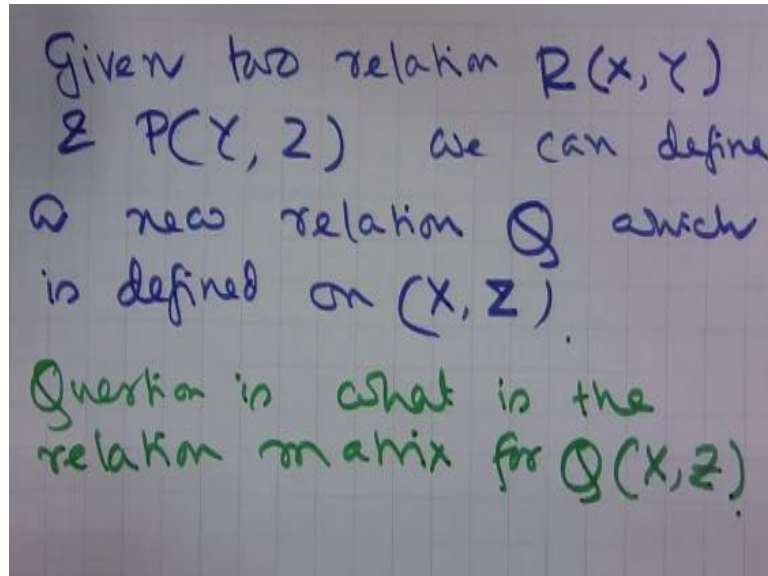 Given two relation R(X, Y)
& P(Y, Z) we can define
a new relation Q which
is defined on (X, Z).
Question is what is the
relation matrix for Q(X,Z).